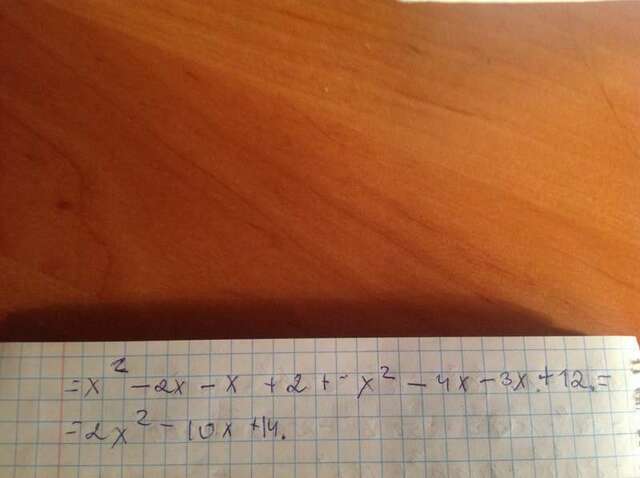 =x² - 2x - x + 2 + x² - 4x - 3x + 12 =
= 2x² - 10x + 14.